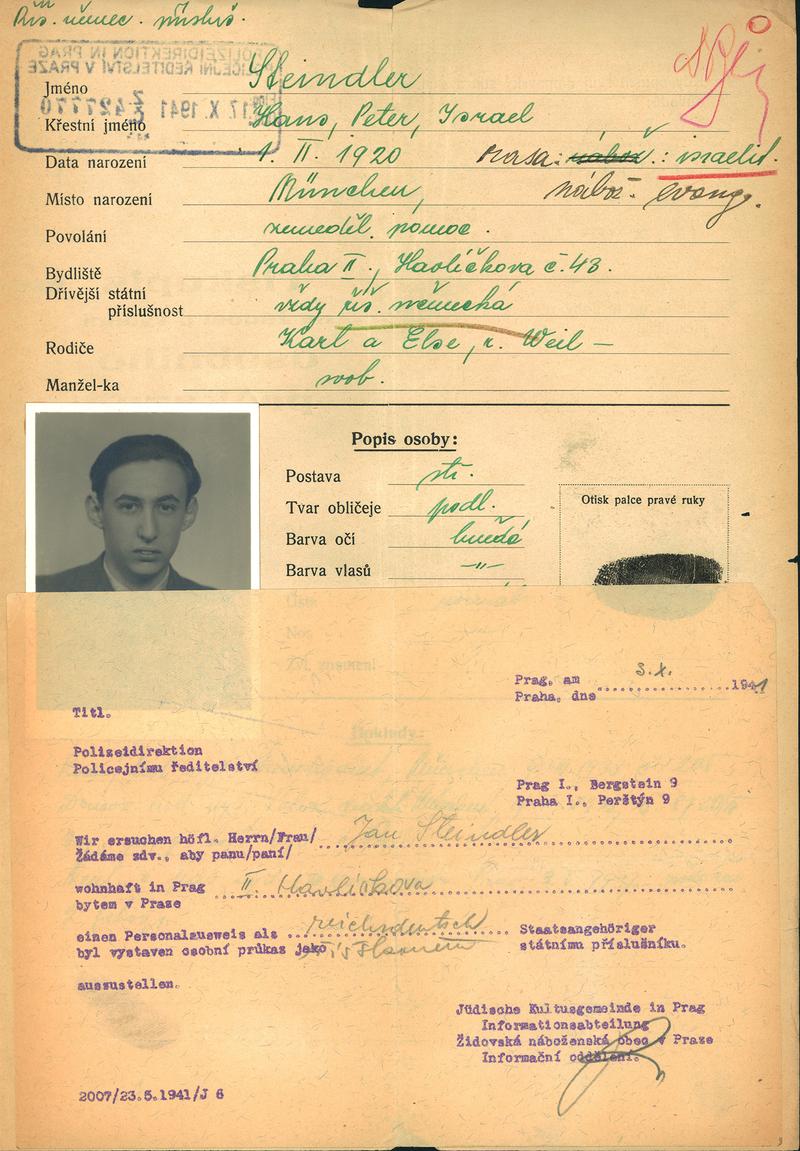 Říš. němec. přísluš.
POLIZEIDIREKTION IN PRAG
POLICEJNÍ ŘEDITELSTVÍ V PRAZE
17. X. 1941
427770
Jméno Steindler
Křestní jméno Hans, Peter, Israel
Data narození 1. II. 1920 rasa: nábož. : israelit.
Místo narození München, nábož. evang.
Povolání zeměděl. pomoc.
Bydliště Praha II., Havlíčkova č. 43.
Dřívější státní
příslušnost vždy říš. německá
Rodiče Karl a Else, r. Weil —
Manžel-ka svob.
Popis osoby:
Postava stř.
Tvar obličeje podl.
Barva očí hnědá
Barva vlasů —"—
Otisk palce pravé ruky
Doklady:
Prag, am 3. X. 1941
Praha, dne
Titl.
Polizeidirektion
Policejnímu ředitelství
Prag I., Bergstein 9
Praha I., Perštýn 9
Wir ersuchen höfl. Herrn/Frau/ Jan Steindler
Žádáme zdv., aby panu/paní/
wohnhaft in Prag II. Havlíčkova
bytem v Praze
einen Personalausweis als reichsdeutsch Staatsangehöriger
byl vystaven osobní průkaz jako státnímu příslušníku.
auszustellen.
Jüdische Kultusgemeinde in Prag
Informationsabteilung
Židovská náboženská obec v Praze
Informační oddělení.
2007/23.5.1941/J 6